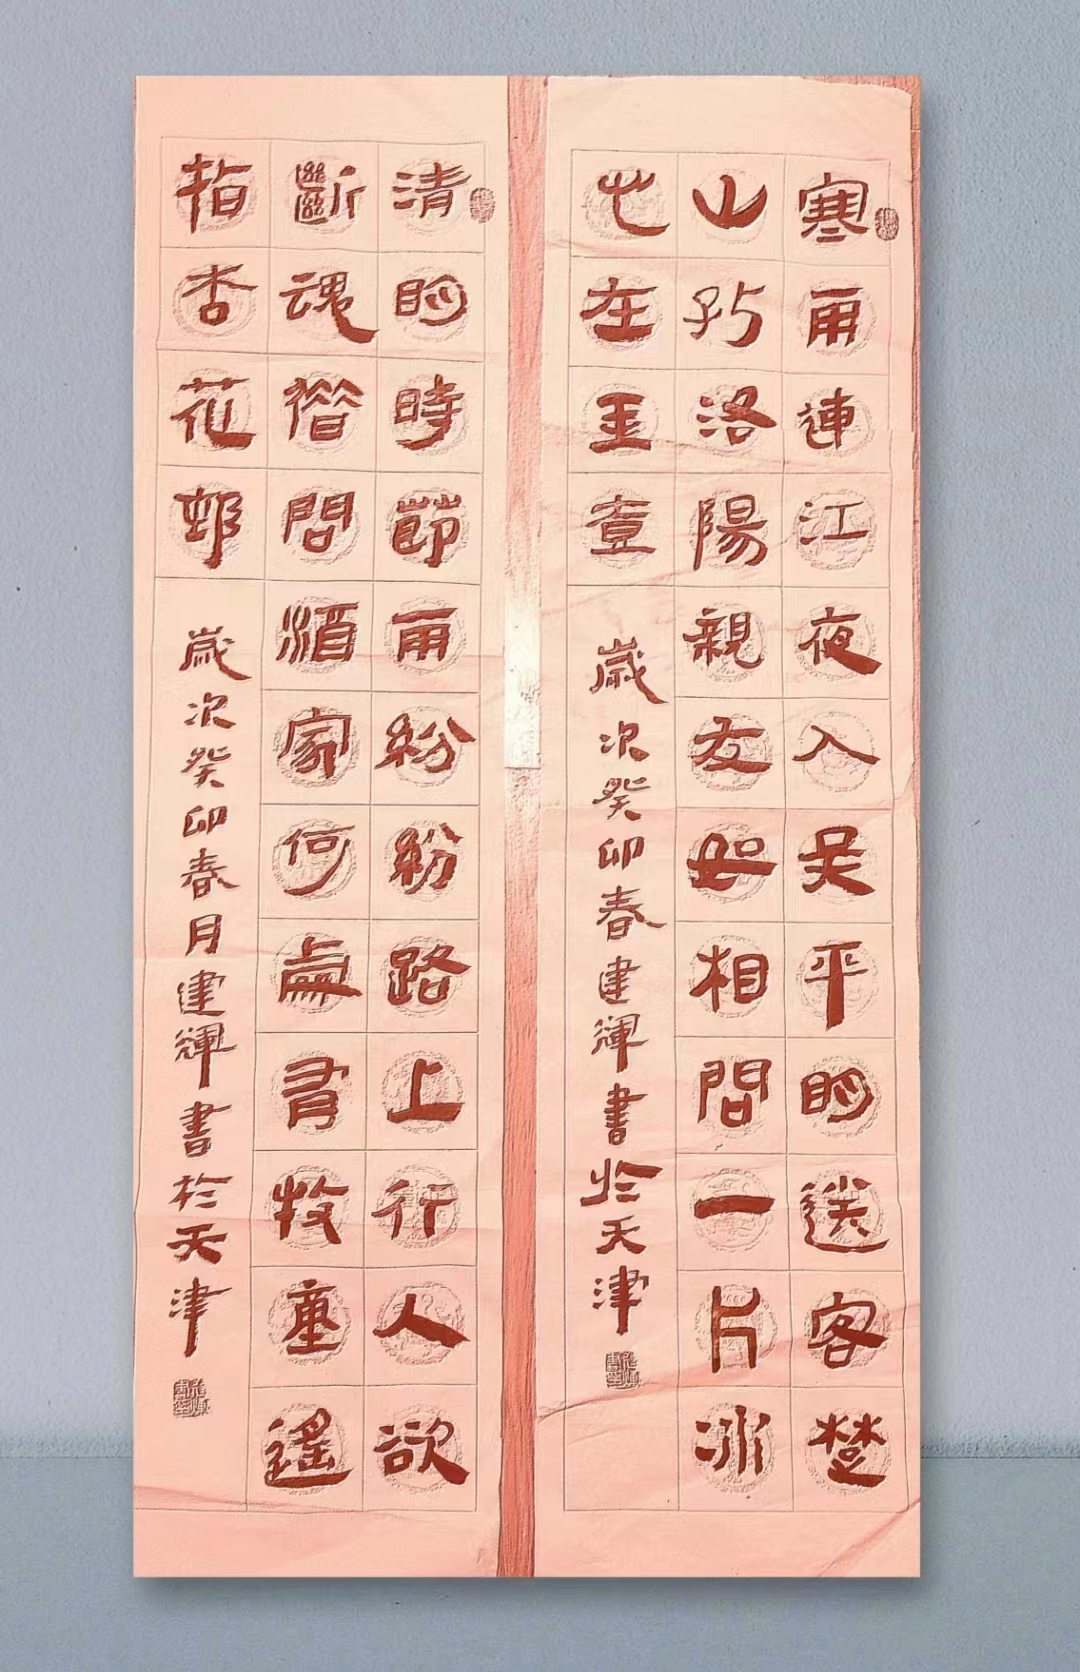 寒雨連江夜入吴平眀送客楚
山孤洛陽親友如相問一片冰
心在玉壺
歲次癸卯春建輝書於天津
清眀時節雨紛紛路上行人欲
斷魂借問酒家何處有牧童遙
指杏花邨
歲次癸卯春月建輝書於天津